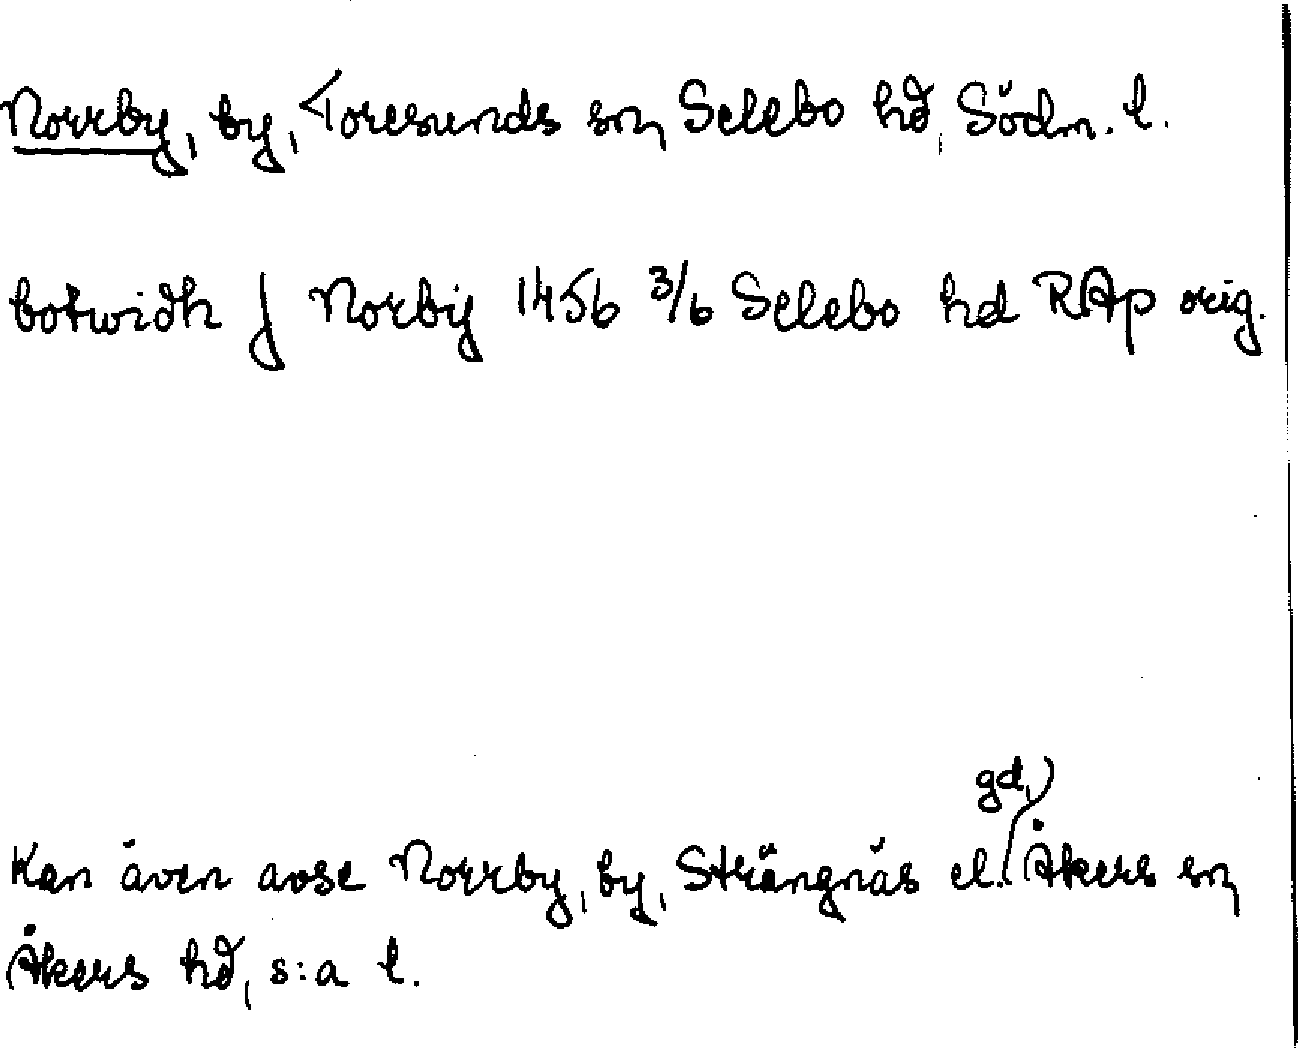 Norrby, by, Toresunds sn, Selebo hd, Södm. l.
botwidh j Norby 1456 3/6 Selebo hd RAp orig.
Kan även avse Norrby, by, Strängnäs el. gd, Åkers sn,
Åkers hd, s:a l.